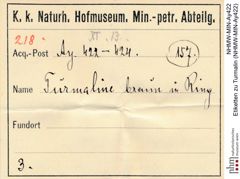 K. k. Naturh. Hofmuseum. Min.-petr. Abteilg.
218. XI. B.
Acq.-Post Ay. 422-424. 157.
Name Turmaline braun in Ring
Fundort
3.
NHMW-MIN-Ay422
Etiketten zu Turmalin (NHMW-MIN-Ay422)
nhm